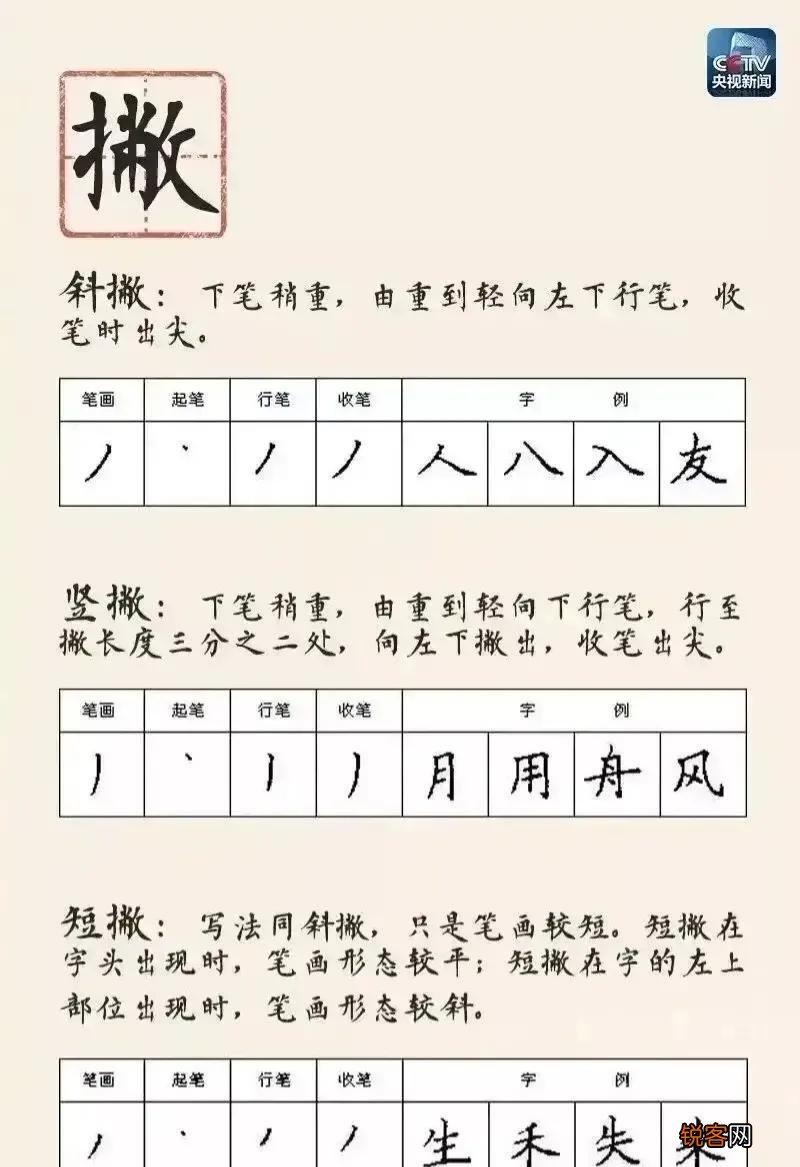 CCTV
央视新闻
撇
斜撇：下笔稍重，由重到轻向左下行笔，收
笔时出尖。
笔画 起笔 行笔 收笔 字 例
人 八 入 友
竖撇：下笔稍重，由重到轻向下行笔，行至
撇长度三分之二处，向左下撇出，收笔出尖。
笔画 起笔 行笔 收笔 字 例
月 用 舟 风
短撇：写法同斜撇，只是笔画较短。短撇在
字头出现时，笔画形态较平；短撇在字的左上
部位出现时，笔画形态较斜。
笔画 起笔 行笔 收笔 字 例
生 禾 失
锐客网